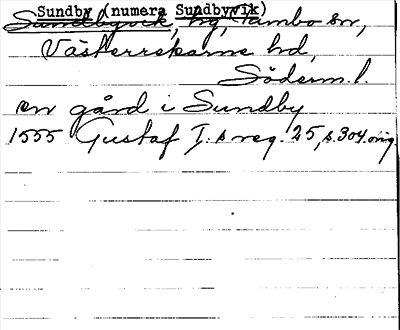 Sundby (numera Sundbyvik)
Sundbyvik, hg, Jambo sn,
Västerrekarne hd,
Söderm. l.
en gård i Sundby
1555 Gustaf I:s reg. 25, s. 304. orig.